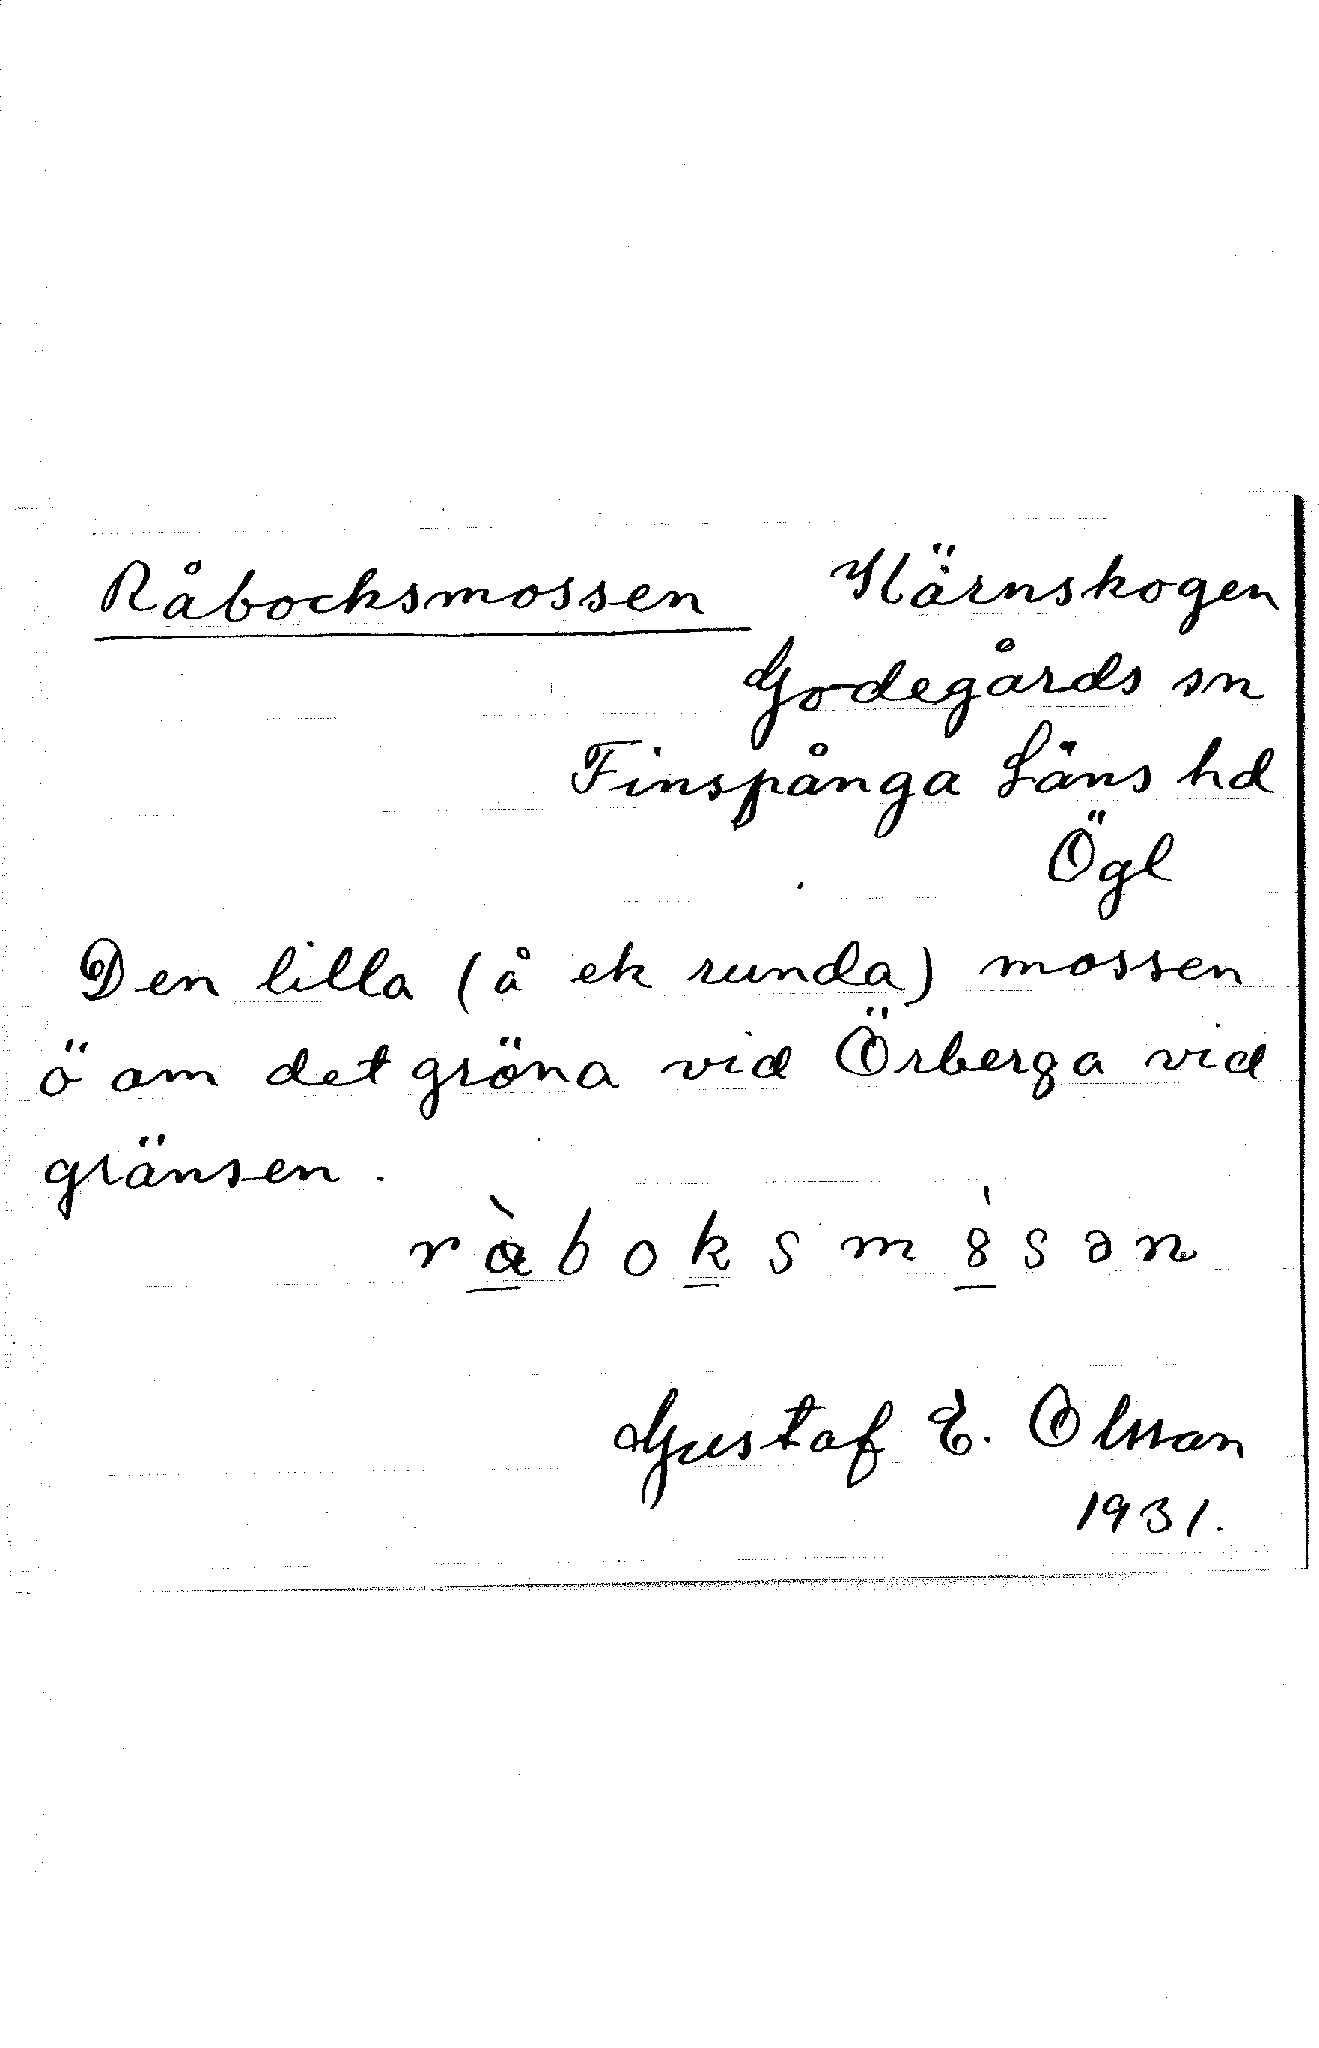 Råbocksmossen Kärnskogen
Godegårds sn
Finspånga Läns hd
Ögl
Den lilla (å ek runda) mossen
ö om det gröna vid Örberga vid
gränsen.
ràboksm8̀sən
Gustaf E. Olsson
1931.